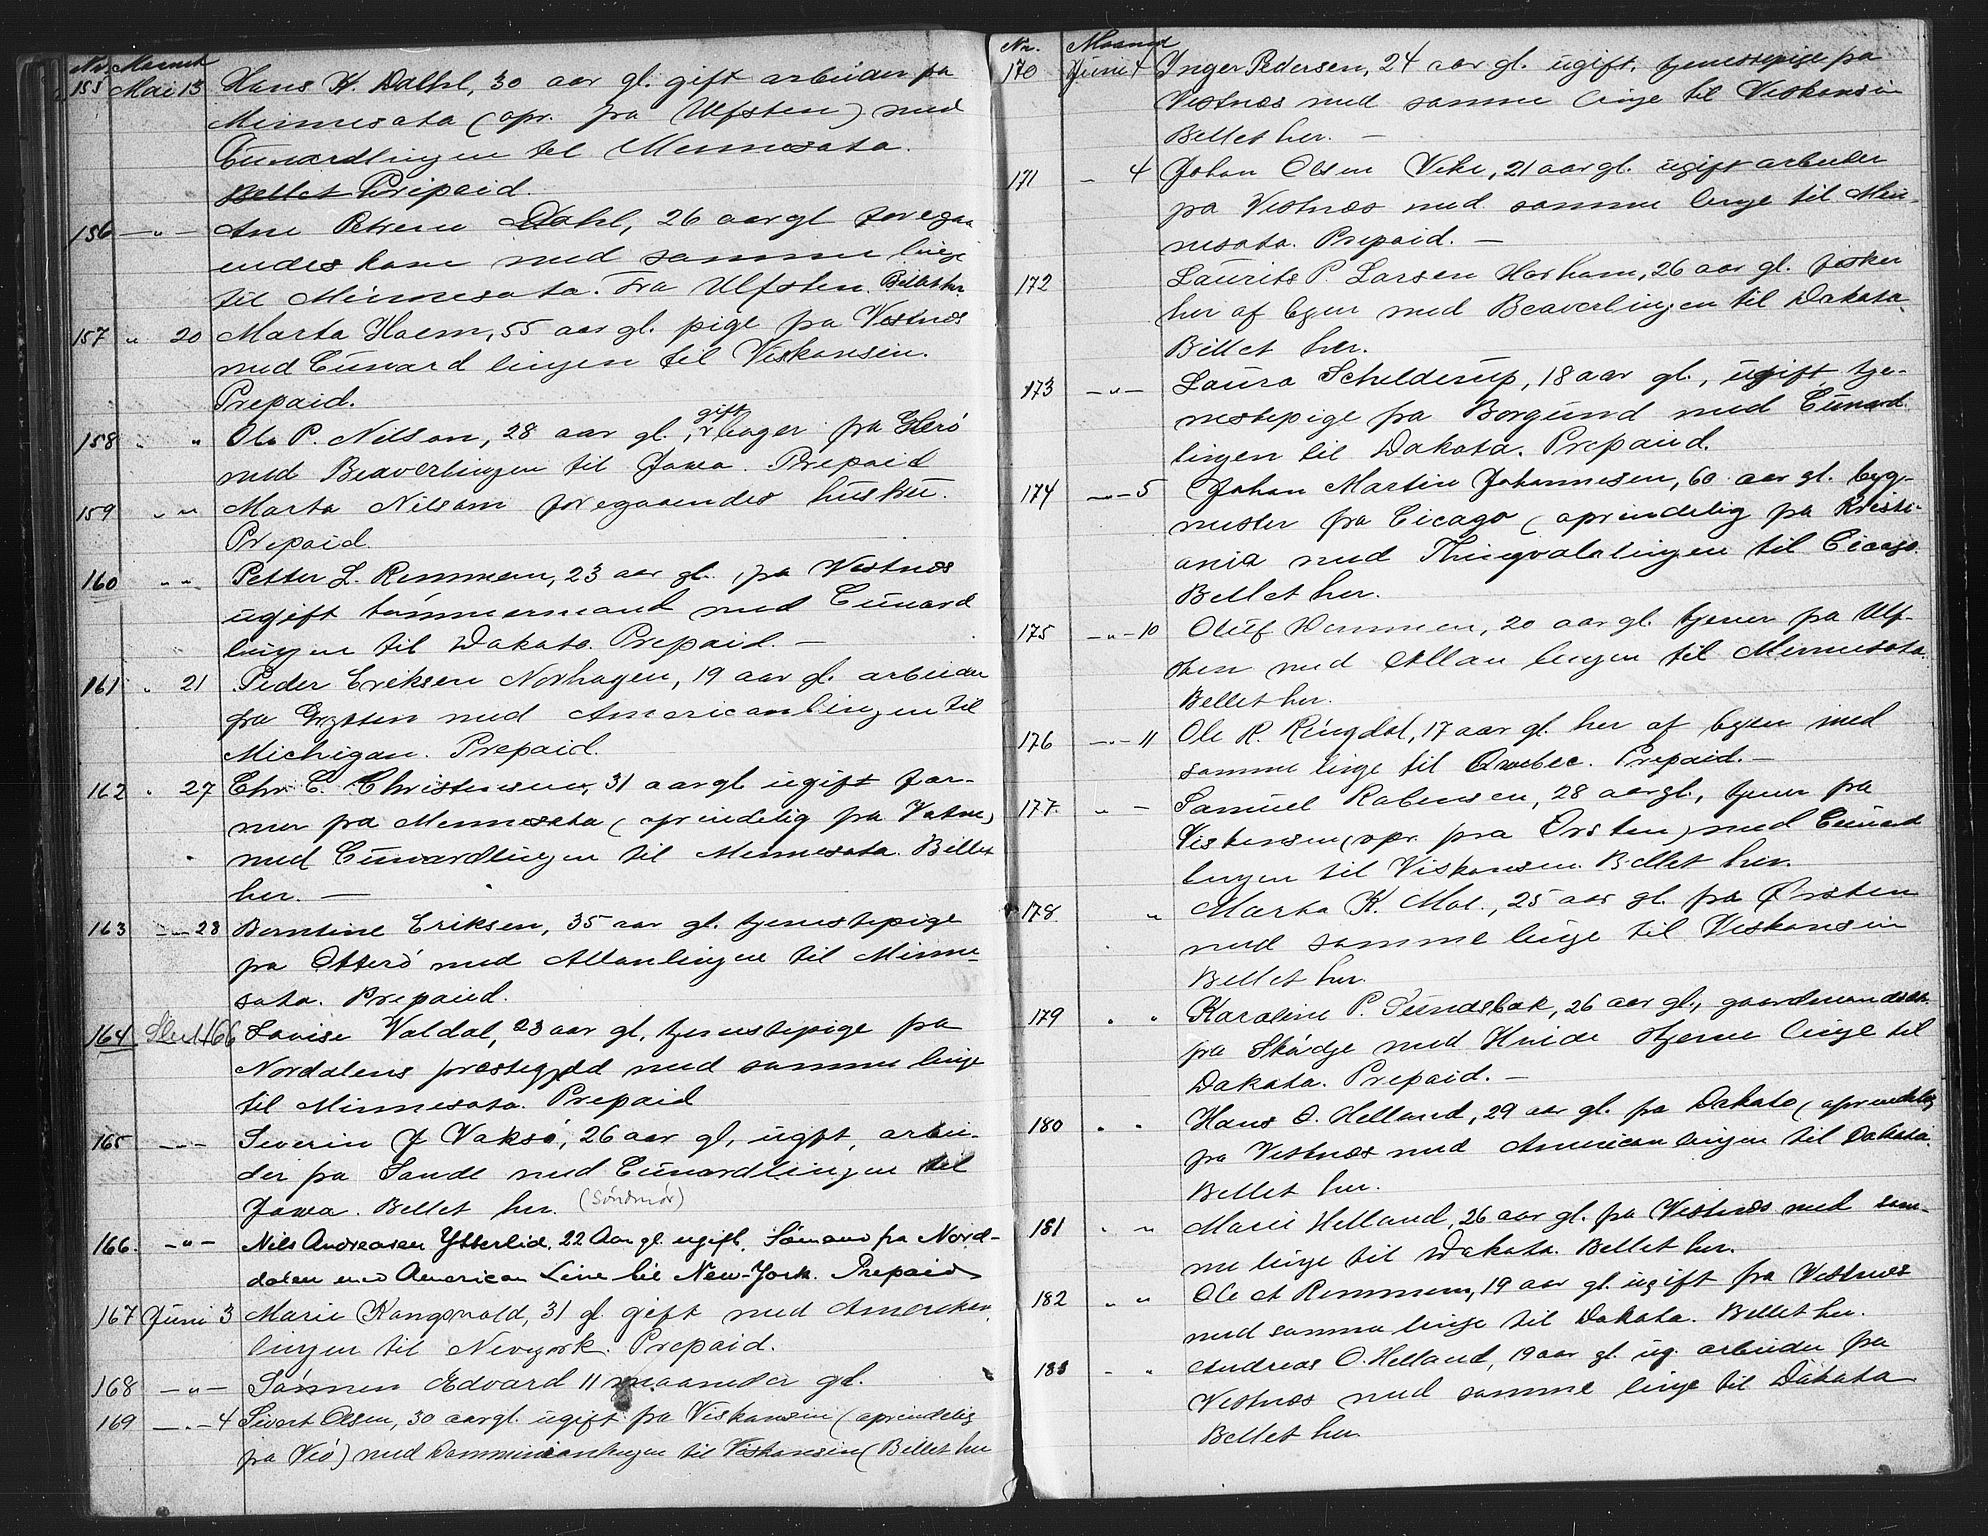 Nr. Maaned
155 Mai 13 Hans K. Dalhl, 30 aar gl. gift arbeider fra
Minnesota (opr. fra Ulfsten) med
Cunardlingen til Minnesota.
Bellet Pripaid.
156 — " — Ane Petrine Dahl, 26 aar gl foregaa
endes kone med samme linje
til Minnesota. Fra Ulfsten. Billet her.
157 " 20 Marta Haem, 55 aar gl. pige fra Vestnes
med Cunard lingen til Viskonsin.
Prepaid.
158 " " Ole P. Nilson, 28 aar gl., gift bager fra Herö
med Beaverlingen til Jowa. Prepaid
159 " " Marta Nilsson foregaaendes hustru.
Prepaid.
160 " " Petter L. Remmem, 23 aar gl., fra Vestnes
ugift tømmermand med Cunard
lingen til Dakota. Prepaid. —
161 " 21 Peder Eriksen Norhagen, 19 aar gl. arbeider
fra Grytten med Americanlingen til
Michigan. Prepaid.
162 " 27 Chr. C. Christensen, 31 aar gl ugift far-
mer fra Minnesota (oprindelig fra Vatne)
med Cunardlingen til Minnesota. Billet
her. —
163 — " — 28 Berntine Eriksen, 35 aar gl. tjenestepige
fra Otterö med Allanlingen til Minne-
sota. Prepaid.
164 Slut 166 Lovise Valdal, 23 aar gl, tjenestepige fra
Nordalens prestegjeld med samme linje
til Minnesota. Prepaid
165 — " — Severin J Vaksö, 26 aar gl, ugift, arbei-
der fra Sande med Cunardlingen til
Jowa. Bellet her. (Söndmör)
166. — " — Nils Andreasen Ytterlid. 22 Aar gl. ugift. Sömand fra Nord-
dalen med American Line til New-York. Prepaid
167 Juni 3 Marie Kongsvold, 31 gl. gift med American
lingen til Newyork. Prepaid.
168 — " — Sönnen Edvard 11 maaneder gl.
169 — " — 4 Sivert Olsen, 30 aar gl. ugift fra Viskonsin (oprindelig
fra Veö) med Dominicanlingen til Viskonsin (Billet her
Nr. Maaned
170 Juni 4 Inger Pedersen, 24 aar gl. ugift. tjenestepige fra
Vestnes med samme linje til Viskonsin
Bellet her. —
171 — 4 Johan Olsen Vike, 21 aar gl. ugift arbeider
fra Vestnes med samme linje til Min-
nesota. Prepaid. —
172 Laurits P. Larsen Harham, 26 aar gl. fisker
her af byen med Beaverlingen til Dakota.
Billet her.
173 — " — Laura Schelderup, 18 aar gl., ugift tje-
nestepige fra Borgund med Cunard
lingen til Dakota. Prepaid.
174 — " — 5 Johan Martin Johannesen, 60 aar gl. byg-
mester fra Cicago (oprindelig fra Kristi-
ania med Thingvalalingen til Cicago.
Bellet her.
175 — " — 10 Oluf Hemmen, 20 aar gl. tjener fra Ulf-
sten med Allan lingen til Minnesota.
Bellet her.
176 — " — 11 Ole R. Ringdal, 17 aar gl. her af byen med
samme linje til Quebec. Prepaid. —
177. " — Samuel Robensen, 28 aar gl., tjener fra
Viskonsin (opr. fra Orsten) med Cunard
lingen til Viskonsin. Bellet her.
178 " Marta K. Mol., 25 aar gl. fra Ørsten
med samme linje til Viskonsin
Bellet her.
179 " " Karoline P. Tundsbak, 26 aar gl., gaardmandsdtr.
fra Sködje med Hvide stjerne linje til
Dakota. Prepaid. —
180 " " Hans O. Helland, 29 aar gl. fra Dakota (oprindelig
fra Vestnes med American lingen til Dakota.
Bellet her.
181 " " Marie Helland, 26 aar gl. fra Vestnes med sam-
me linje til Dakota. Bellet her.
182 " " Ole A Remmem, 19 aar gl. ugift fra Vestnes
med samme linje til Dakota. Bellet her.
183 - " Andreas O. Helland, 19 aar gl. ug. arbeider fra
Vestnes med samme linje til Dakota
Bellet her